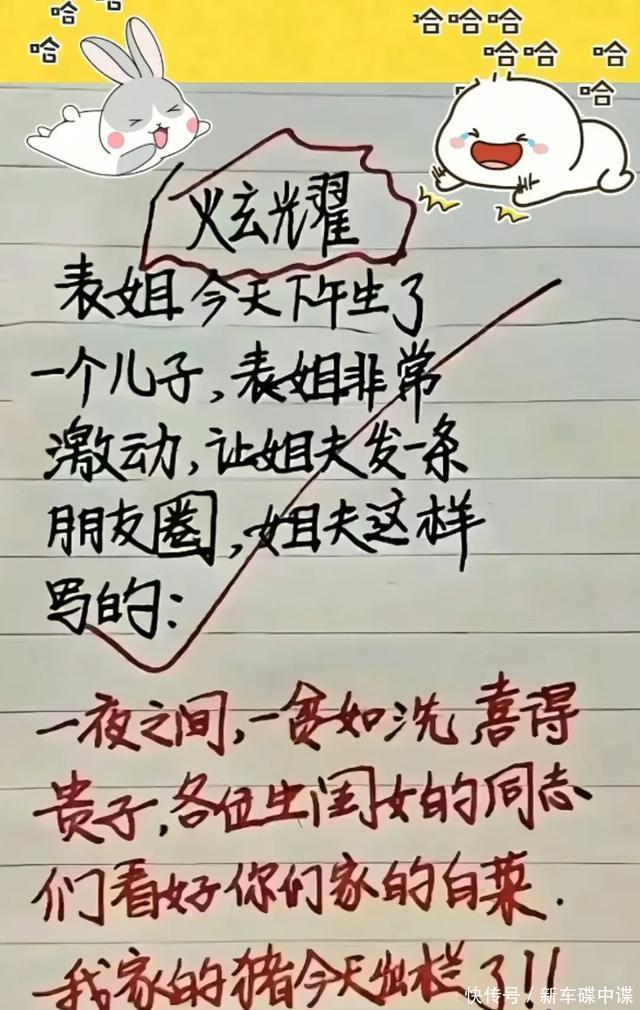 哈哈
哈
哈哈哈
哈哈 哈
哈
炫耀
表姐今天下午生了
一个儿子,表姐非常
激动,让姐夫发一条
朋友圈,姐夫这样
写的:
一夜之间,一贫如洗,喜得
贵子,各位生闺女的同志
们看好你们家的白菜.
我家的猪今天出栏了!!
快传号/新车碟中谍